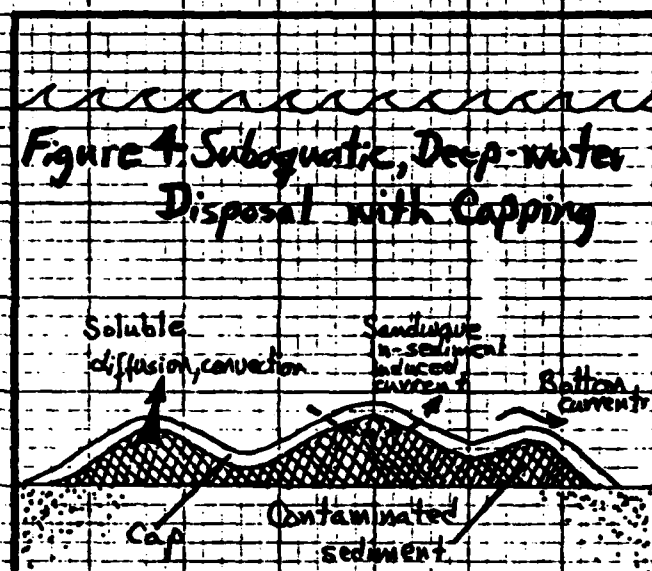 Figure 4. Subaquatic, Deep-water
Disposal with Capping
Soluble
diffusion, convection
n-sediment
induced
current
Bottom
currents
Cap
Contaminated
sediment